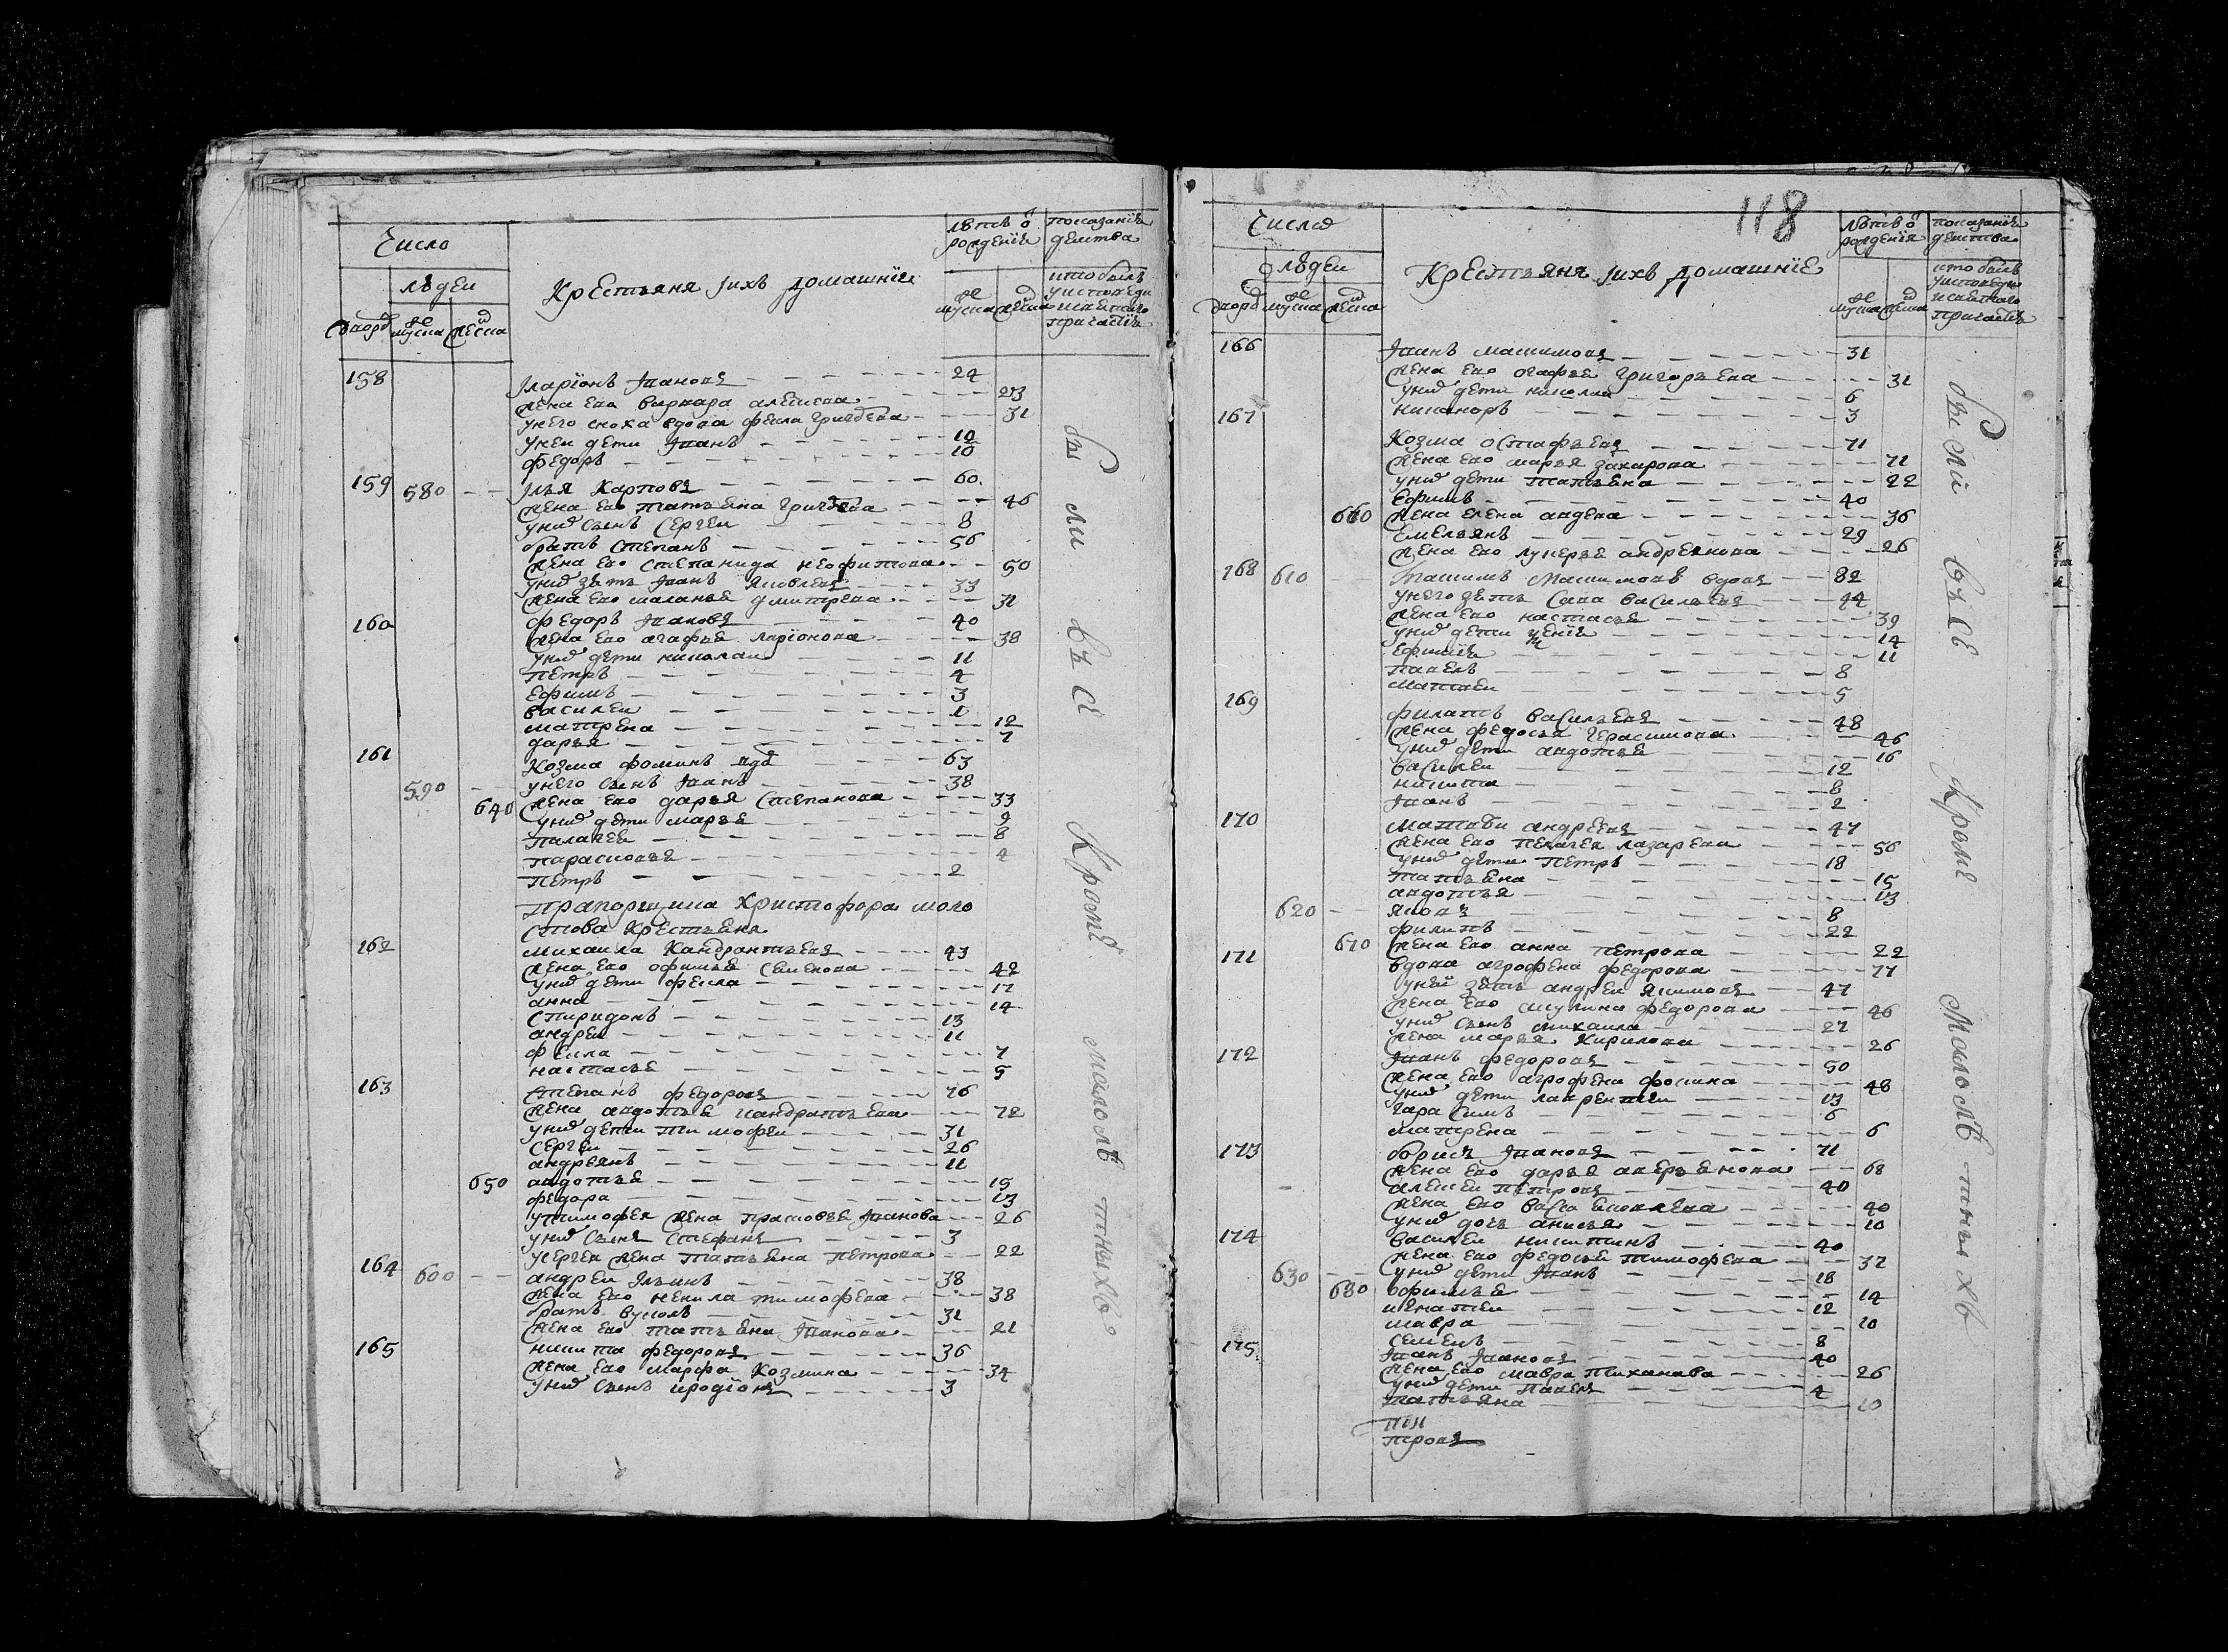 Число
людеи
дворо муска женска
Крестьяня ихъ домашние
лѣтъ от рождения
муска женска
показание деиства
кто былъ у исповеди и святаго причастия
158 Иларионъ Iвановъ 24
жена ево варвара алексеева 23
у него сноха вдова фекла григорева 31
у неи дети Iванъ 12
федоръ 10
159 580 Илья Карповъ 60
жена ево татьяна григорева 46
у них сынъ Сергеи 8
братъ степанъ 56
жена ево степанида неофитова 50
у них зять Iванъ Яковлевъ 33
жена ево маланья дмитрева 31
160 федоръ Iвановъ 40
жена ево агафья ларионова 38
у них дети николаи 11
петръ 4
ефимъ 3
василеи 1
матрена 12
дарья 7
161 Козма фоминъ вдов 63
590 у него сынъ Iванъ 38
640 жена ево дарья степанова 33
у них дети марья 9
палагея 8
парасковья 4
петръ 2
прапорщика христофора моло
стова крестьяня
162 михаила Кандратьевъ 43
жена ево офимья семенова 42
у них дети фекла 17
анна 14
спиридонъ 13
андреи 11
фекла 7
настасья 5
163 степанъ федоровъ 76
жена авдотья кандратьева 72
у них дети тимофеи 31
Сергеи 26
андреянъ 11
650 авдотья 15
федора 13
у тимофея жена прасковья Iванова 26
у них сынъ стефанъ 3
у сергея жена татьяна петрова 22
164 600 андреи Ильинъ 38
жена ево ненила тимофева 38
братъ вуколъ 31
жена ево татьяна Iванова 21
165 никита федоровъ 36
жена ево марфа Козмина 34
у них сынъ иродионъ 3
были вси Кроме малолѣтныхъ
118
Числа
людеи
дворо муска женска
Крестьяня ихъ домашние
лѣтъ от рождения
муска женска
показание деиства
кто былъ у исповеди и святаго причастия
166 Iванъ максимовъ 31
жена ево агафья григорьева 31
у них дети николаи 6
никаноръ 3
167 Козма остафьевъ 71
жена ево марья захарова 71
у них дети татьяна 22
ефимъ 40
660 жена елена авдеева 36
Емельянъ 29
жена ево лукерья андреянова 26
168 610 максимъ вдовъ 82
у него зять Сава васильевъ 44
жена ево настасья 39
у них дети 14
ефимия 11
павелъ 8
матвеи 5
169 филатъ васильевъ 48
жена федосья герасимова 46
у них дети авдотья 16
василеи 12
никита 8
Iванъ 2
170 матвеи андреевъ 47
жена ево пелагея лазарева 56
у них дети петръ 18
татьяна 15
авдотья 13
620 яковъ 8
филипъ 22
670 жена ево анна петрова 22
171 вдова агрофена федорова 77
у неи зять андреи якимовъ 47
жена ево акулина федорова 46
у них сынъ михаила 27
жена марья Кирилова 26
172 Iванъ федоровъ 50
жена ево агрофена фокина 48
у них дети лаврентеи 13
гарасимъ 6
матрена 6
173 борисъ Iвановъ 71
жена ево дарья аверьянова 68
алексеи петровъ 40
жена ево васса 40
у них дочь анисья 10
174 василеи никитинъ 40
жена ево федосья тимофева 37
630 у них дети Iванъ 18
680 офимья 14
игнатеи 12
мавра 10
семенъ 8
175 Iванъ Iвановъ 40
жена ево мавра тиханава 26
у них дети павелъ 4
татьяна 10
были вьсе Кроме малолѣтныхъ